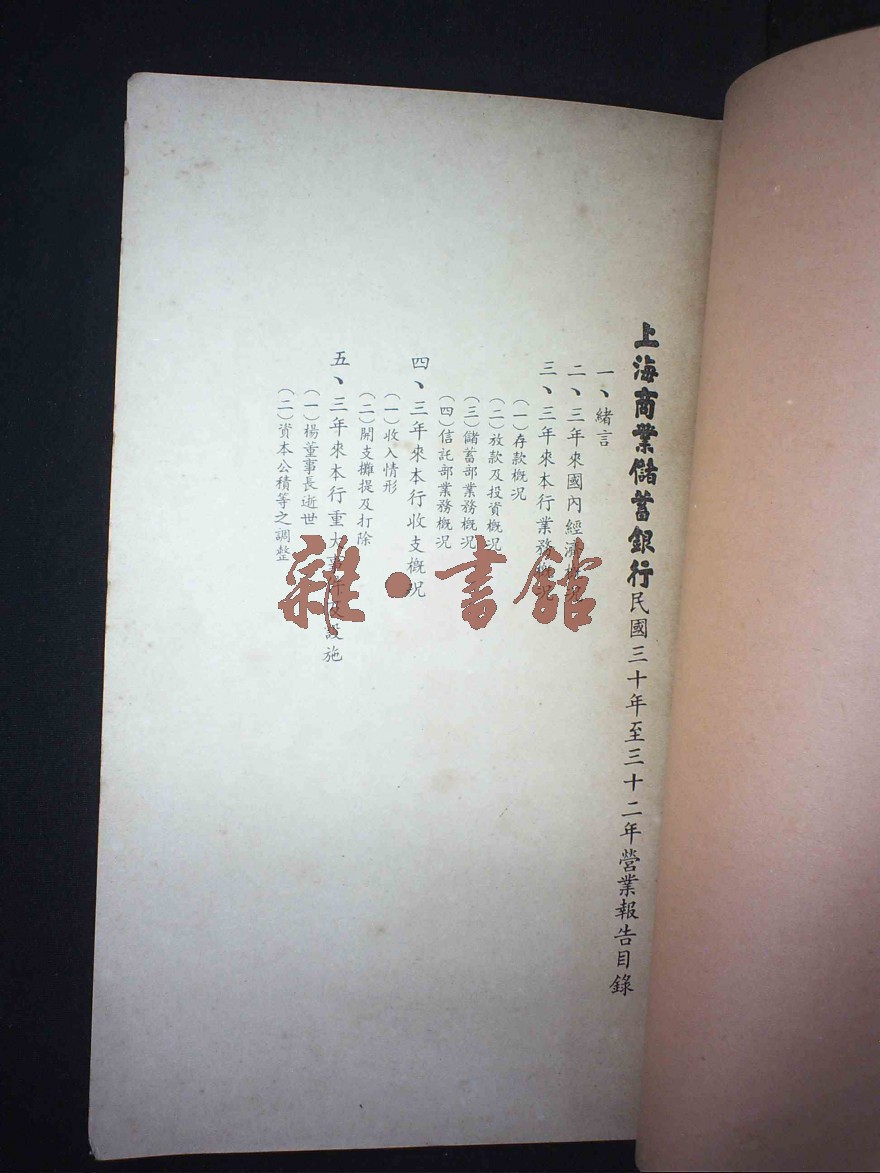 上海商業儲蓄銀行民國三十年至三十二年營業報告目錄
一、緒言
二、三年來國內經濟概況
三、三年來本行業務概況
(一)存款概况
(二)放款及投資概况
(三)儲蓄部業務概况
(四)信託部業務概况
四、三年來本行收支概况
(一)收入情形
(二)開支攤提及打除
五、三年來本行重大事件及設施
(一)楊董事長逝世
(二)資本公積等之調整
雜·書館